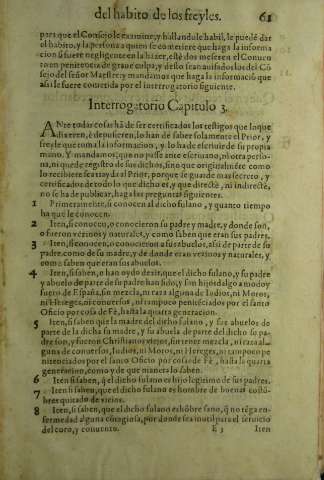 del habito de los freyles. 61
para que el Consejo le examine, y hallandole habil, le puedē dar
el habito, y la persona a quien se cometiere que haga la informa
cion si fuere negligente en la hazer, esté dos meses en el Conuēto
en penitencia de graue culpa, y desto sean auisados los del Cō
sejo del señor Maestre, y mandamos que haga la informació que
assi le fuere cometida por el interrogatorio siguiente.
Interrogatorio Capitulo 3.
ANte todas cosas hā de ser certificados los testigos que loque
dixeren, è depusieren, lo han de saber solamente el Prior, y
freyle que toma la informacion, y lo ha de escriuir de su propia
mano. Y mandamos, que no passe ante escriuano, ni otra perso-
na, ni quede registro de sus dichos, sino que originalmēte como
lo recibiere se traya al Prior, porque se guarde mas secreto, y
certificados de todo lo que dicho es, y que directè, ni indirectè,
no se ha de publicar, haga las preguntas siguientes.
1 Primeramente, si conocen al dicho fulano, y quanto tiempo
ha que le conocen.
2 Iten, si conocen, o conocieron su padre y madre, y donde son,
o fueron vezinos y naturales, y como saben que eran sus padres.
3 Iten, si conocen, o conocieron a sus abuelos, assi de parte de su
padre, como de su madre, y de donde eran vezinos y naturales, y
como saben que eran sus abuelos.
4 Iten, si saben, o han oydo dezir, que el dicho fulano, y su padre
y abuelo de parte de su padre han sido, y son hijosdalgo a modo y
fuero de España, sin mezcla, ni raza alguna de Iudios, ni Moros,
ni Hereges, ni conuersos, ni tampoco penitēciados por el santo
Oficio por cosa de Fè, hasta la quarta generacion.
5 Iten, si saben que la madre del dicho fulano, y sus abuelos de
parte de la dicha su madre, y su abuela de parte del dicho su pa-
dre son, y fueron Christianos viejos, sin tener mezcla, ni raza al-
guna de conuersos, Iudios, ni Moros, ni Hereges, ni tampoco pe
nitenciados por el santo Oficio por cosa de Fè, hasta la quarta
generacion, como y de que manera lo saben.
6 Iten si saben, q̄ el dicho fulano es hijo legitimo de sus padres.
7 Iten si saben, que el dicho fulano es hombre de buenas costū-
bres quitado de vicios.
8 Iten, si saben, que el dicho fulano es hōbre sano, q̄ no tēga en-
fermedad alguna cōtagiosa, por donde sea inutil para el seruicio
del coro, y conuento. E 3 Iten